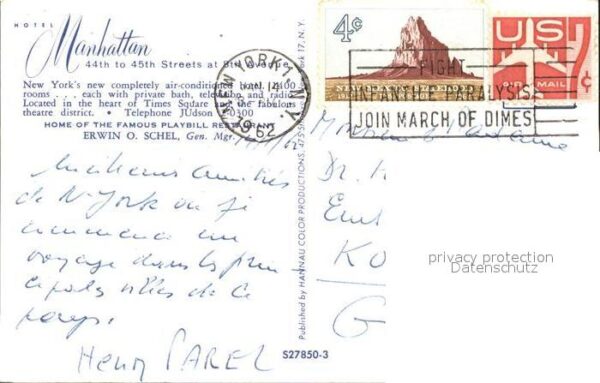 HOTEL
Manhattan
44th to 45th Streets at 8th Avenue
New York's new completely air-conditioned hotel. 1400
rooms . . . each with private bath, television and radio.
Located in the heart of Times Square and the fabulous
theatre district. • Telephone JUdson 0300
HOME OF THE FAMOUS PLAYBILL RESTAURANT
ERWIN O. SCHEL, Gen. Mgr.
Meilleures amitiés
de N-York où je
commence un
voyage dans les prin-
cipales villes de ce
pays.
Henry PAREL
Published by HANNAU COLOR PRODUCTIONS, 475 5th
York 17, N.Y.
S27850-3
NEW YORK, N.Y.
JAN 14
1962
4c
US
AIR MAIL
7c
FIGHT
INFANTILE PARALYSIS
JOIN MARCH OF DIMES
Monsieur & Madame
Dr. H
KO
G
privacy protection
Datenschutz